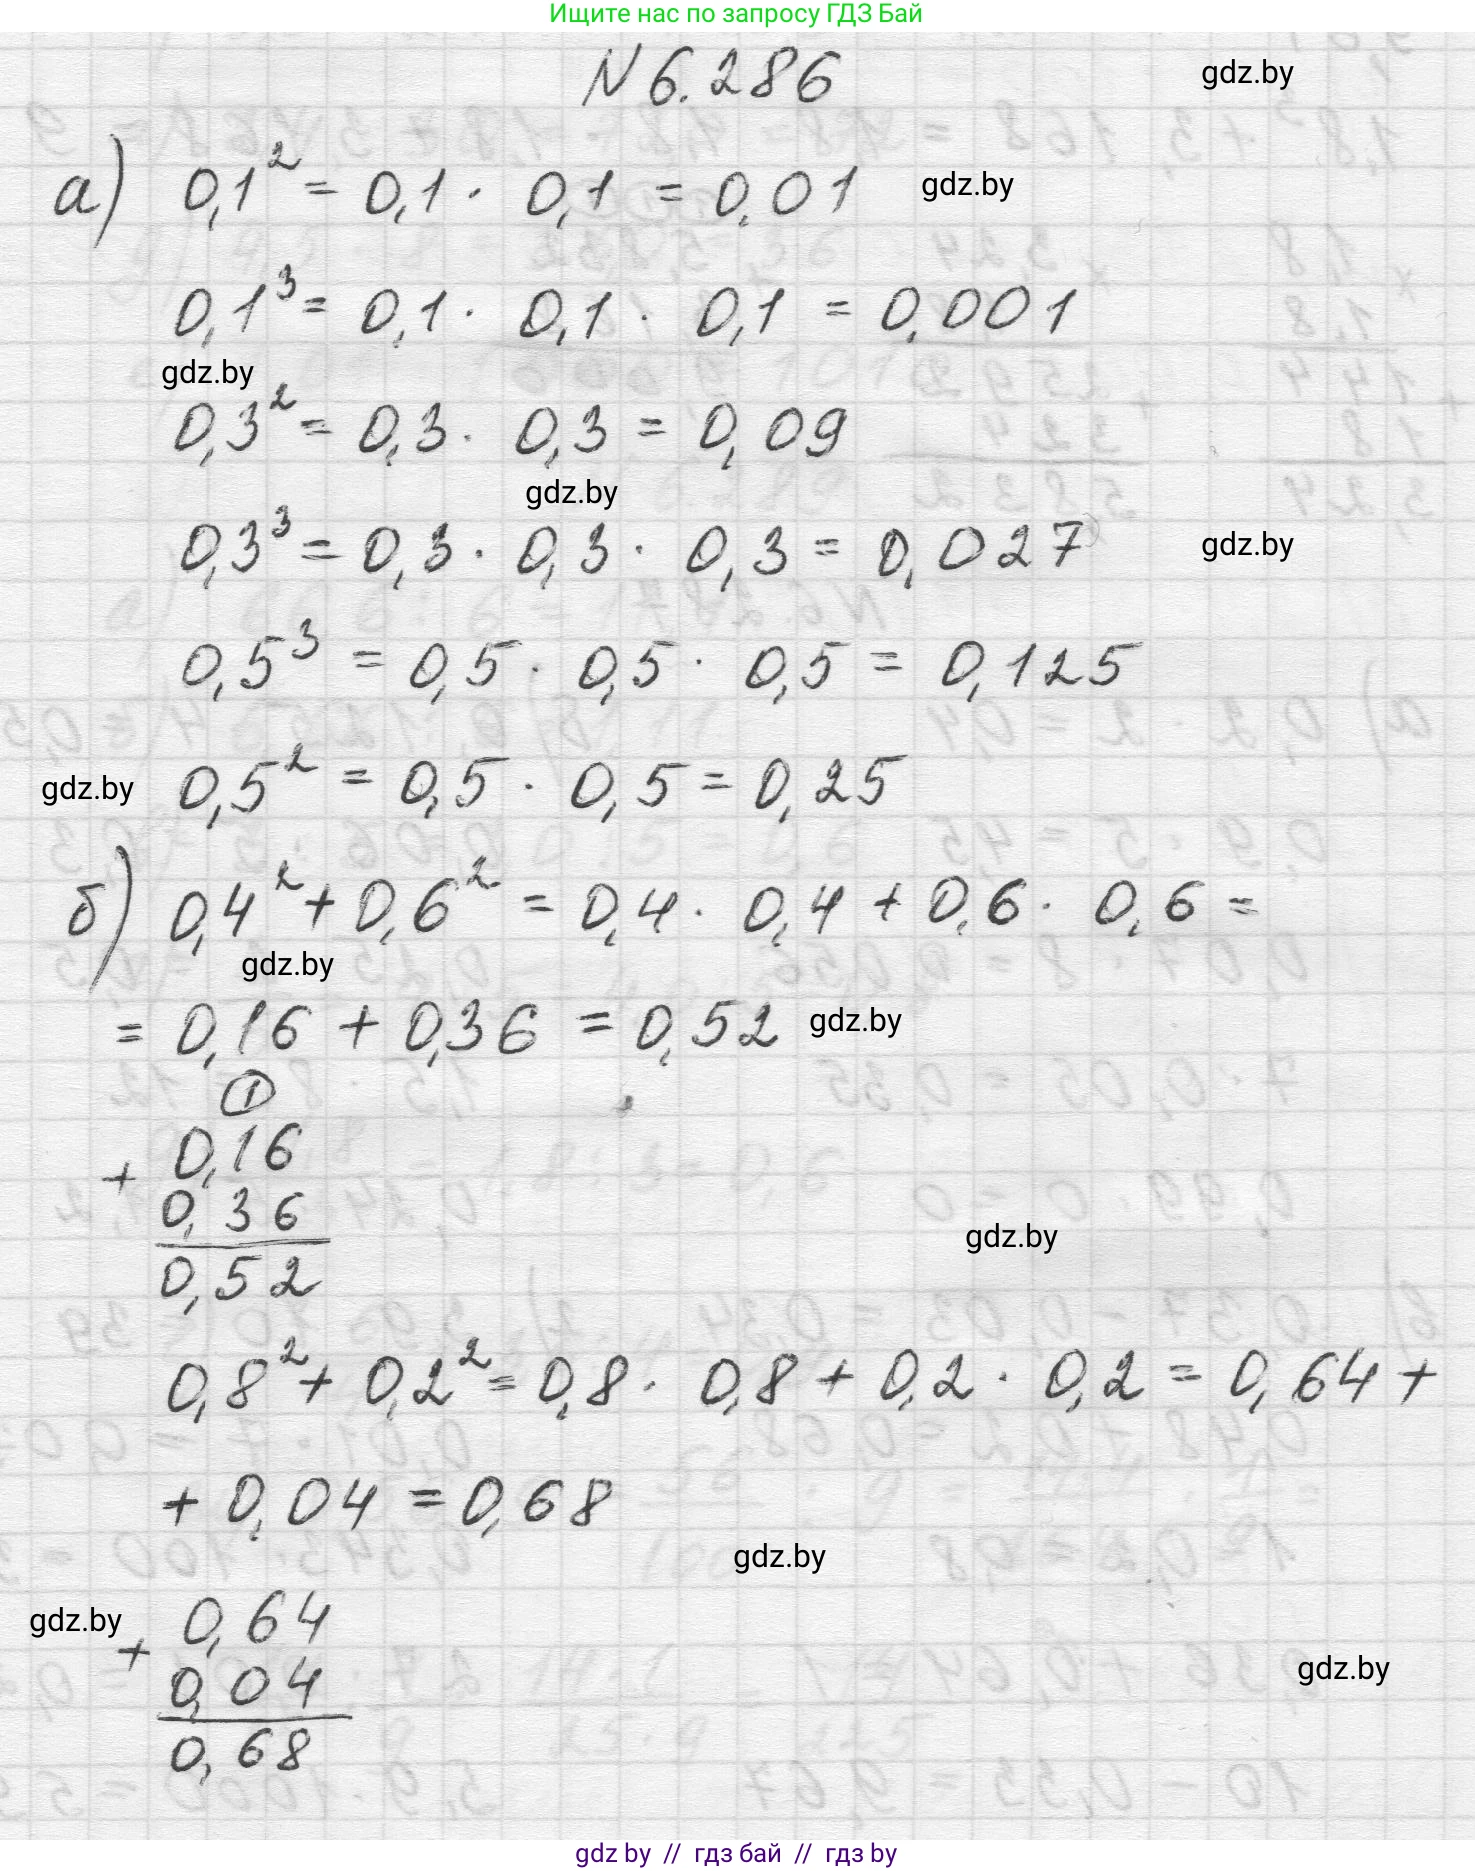 Ищите нас по запросу ГДЗ Бай
N 6.286
gdz.by
а) 0,1² = 0,1 · 0,1 = 0,01
gdz.by
0,1³ = 0,1 · 0,1 · 0,1 = 0,001
gdz.by
0,3² = 0,3 · 0,3 = 0,09
gdz.by
0,3³ = 0,3 · 0,3 · 0,3 = 0,027
gdz.by
0,5³ = 0,5 · 0,5 · 0,5 = 0,125
gdz.by
0,5² = 0,5 · 0,5 = 0,25
б) 0,4² + 0,6² = 0,4 · 0,4 + 0,6 · 0,6 =
gdz.by
= 0,16 + 0,36 = 0,52
gdz.by
1
+ 0,16
0,36
0,52
gdz.by
0,8² + 0,2² = 0,8 · 0,8 + 0,2 · 0,2 = 0,64 +
+ 0,04 = 0,68
gdz.by
gdz.by
+ 0,64
0,04
0,68
gdz.by
gdz by // гдз бай // гдз by